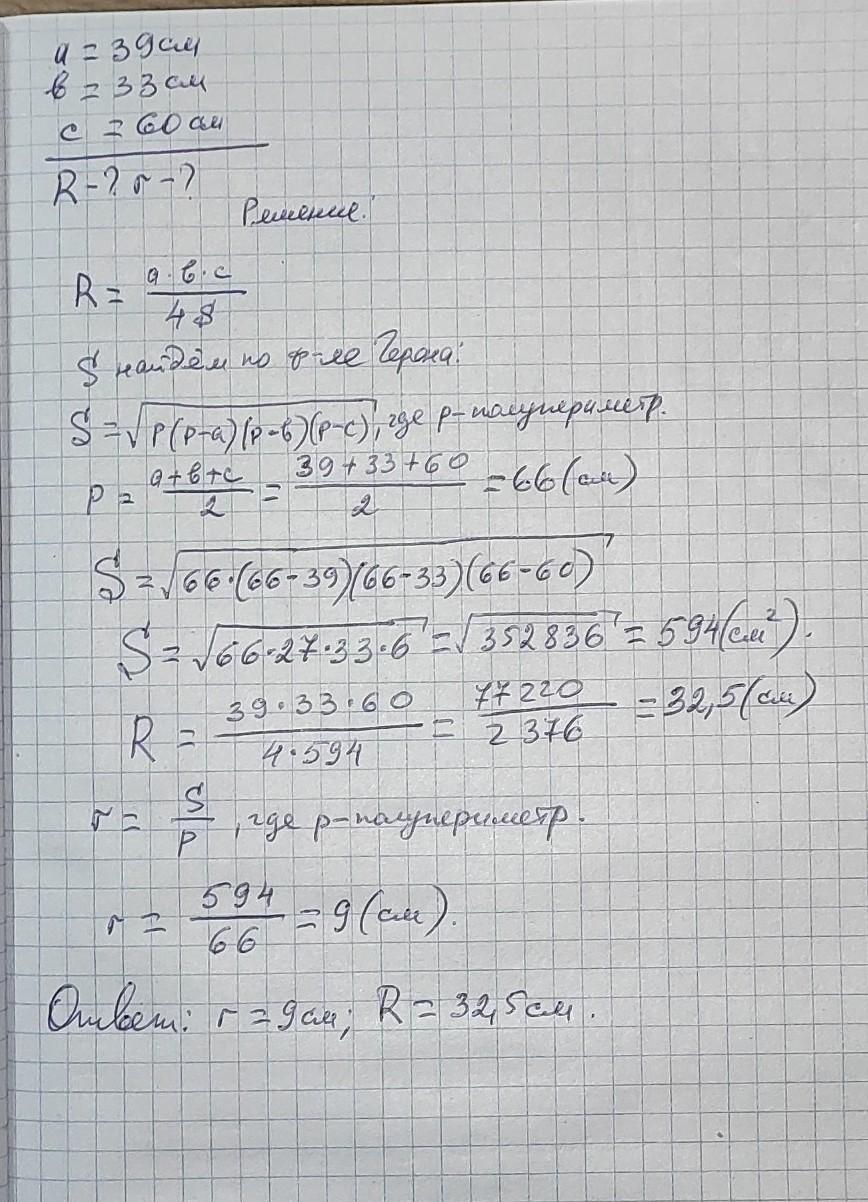 a = 39 см
в = 33 см
c = 60 см
R - ? r - ?
Решение:
R = a·в·c / 4S
S найдём по ф-ле Герона:
S = √p(p-a)(p-в)(p-c), где p-полупериметр.
p = a+в+c / 2 = 39+33+60 / 2 = 66 (см)
S = √66·(66-39)(66-33)(66-60)
S = √66·27·33·6 = √352836 = 594 (см²).
R = 39·33·60 / 4·594 = 77220 / 2376 = 32,5 (см)
r = S / p, где p-полупериметр.
r = 594 / 66 = 9 (см).
Ответ: r = 9 см; R = 32,5 см.